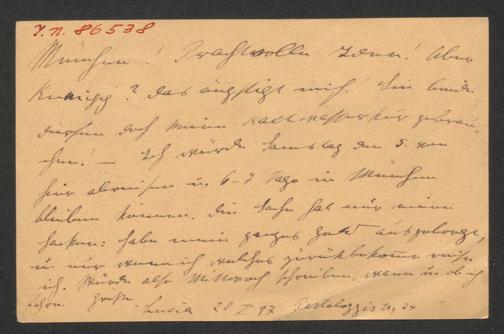 J.N. 86538
München! Prachtvolle Idee! Aber
? Das ängstigt mich! Sie beide
dürfen doch keine Kaltwasserkur gebrau-
chen! — Ich würde Samstag den 5. von
hier abreisen u. 6-7 Tage in München
bleiben können. Die Sache hat nur einen
Haken: habe mein ganzes Geld ausgeborgt,
u. nur wenn ich welches zurückbekomme reise
ich. Würde also Mittwoch schreiben, wann u. ob ich
komme. Grüße.
Lucia 28 X 97 Pestalozzistr. 24